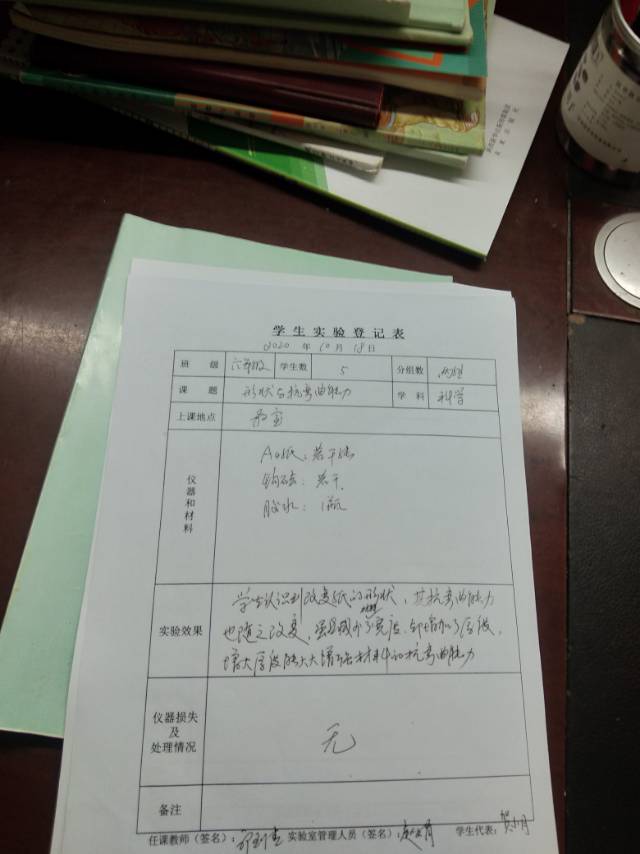 学生实验登记表
2020 年 10 月 18 日
班 级 六年级 学生数 5 分组数
课 题 形状与抗弯曲能力 学 科 科学
上课地点 教室
仪器和材料
A4纸：若干张
钩码：若干
胶水：1瓶
实验效果
学生认识到改变纸的形状，其抗弯曲能力
也随之改变，虽减少了宽度，却增加了厚度，
增大厚度能大大增强材料的抗弯曲能力
仪器损失
及
处理情况
无
备注
任课教师（签名）： 实验室管理人员（签名）： 学生代表：